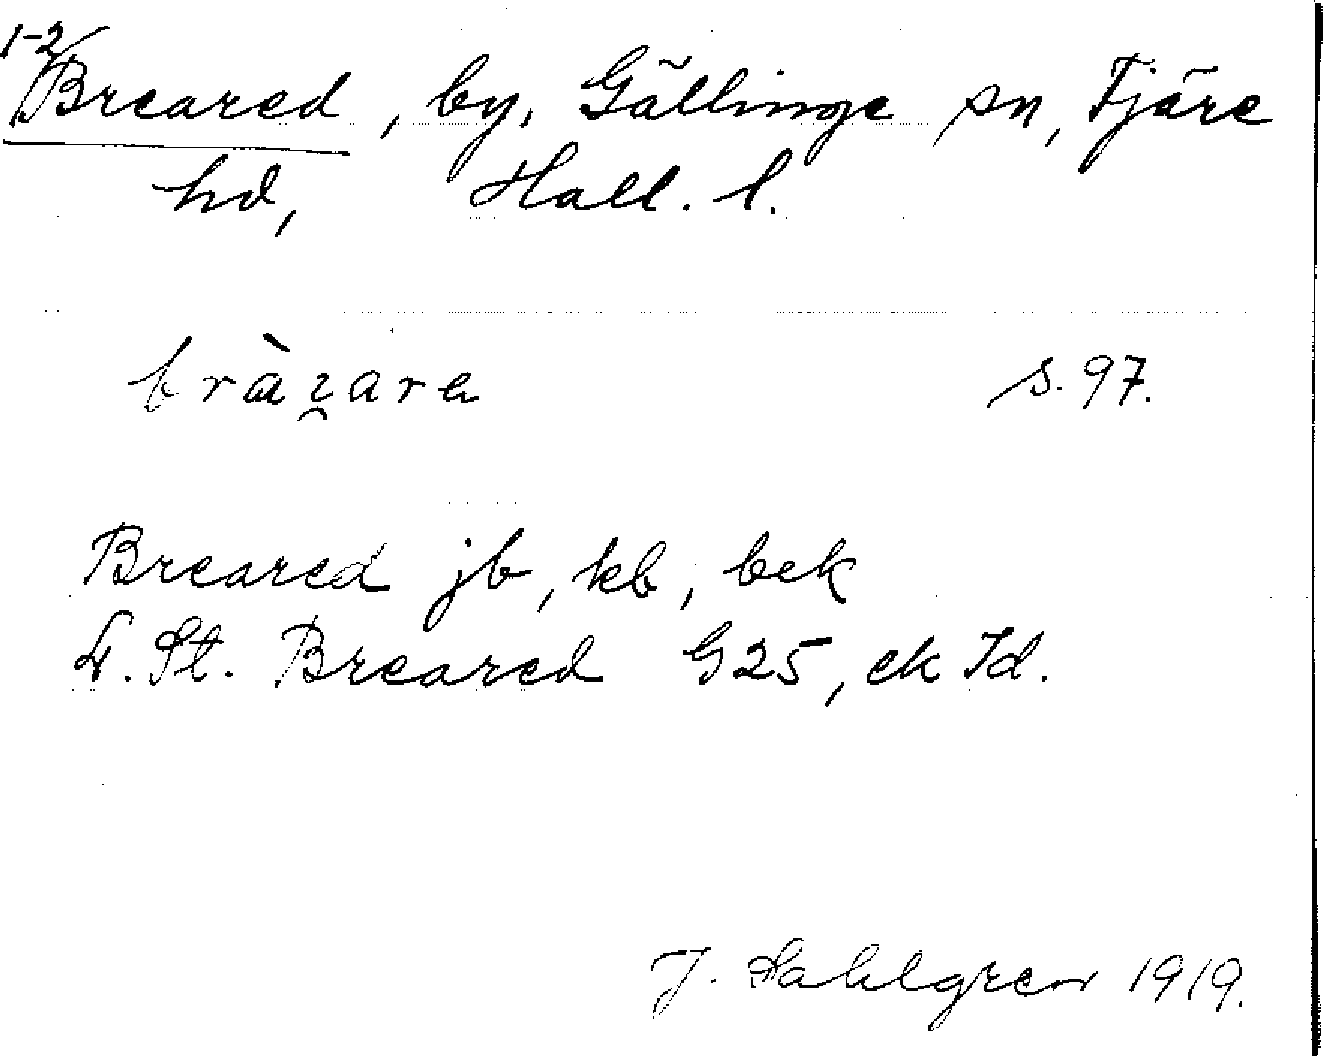 1-2
Breared, by, Gällinge sn, Fjäre
hd, Hall. l.
s. 97.
Breared jb, kb, bek
St. Breared G25, ek Id.
J. Sahlgren 1919.